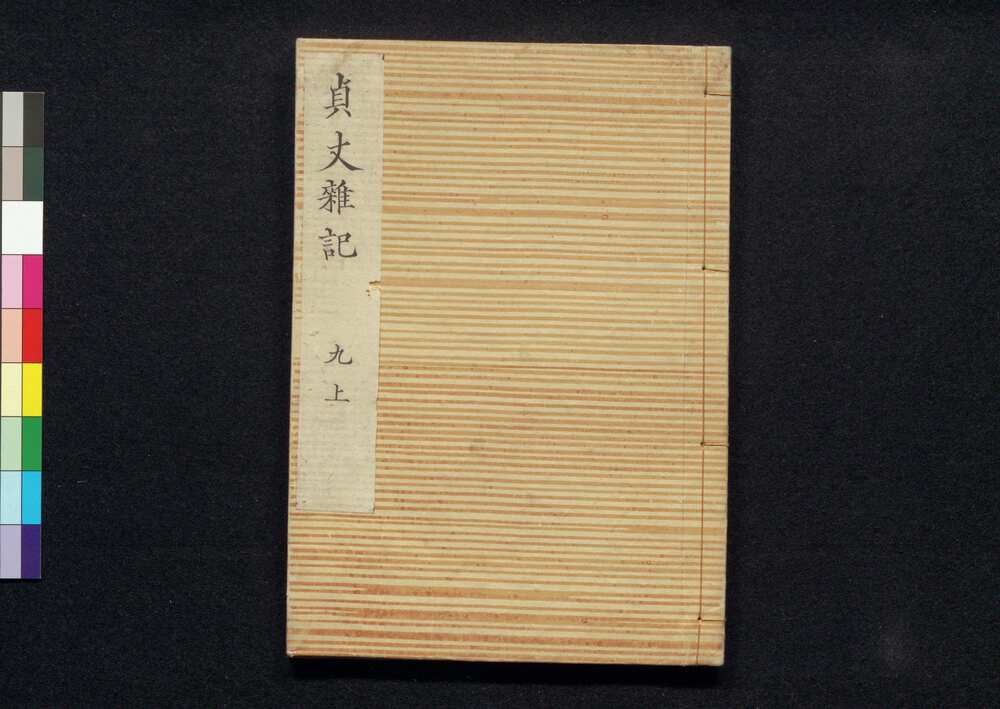 貞丈雜記
九上